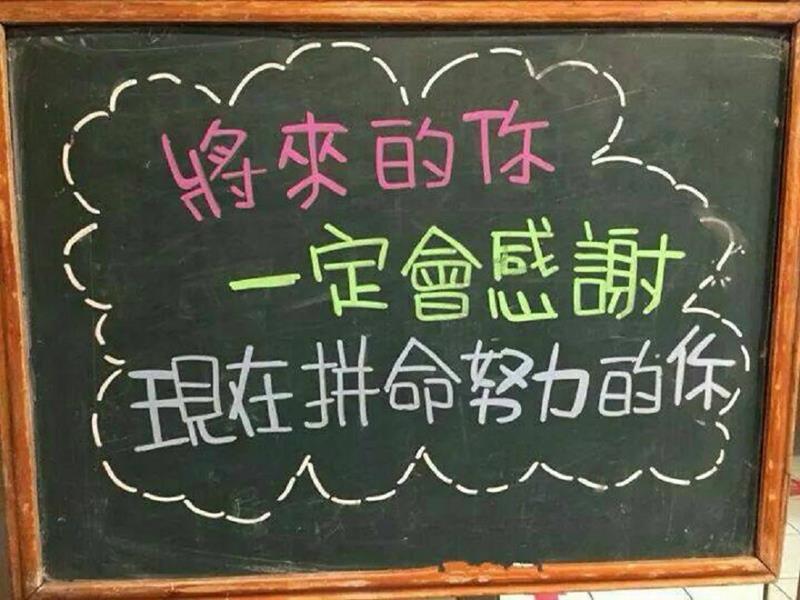 將來的你
一定會感謝
現在拼命努力的你